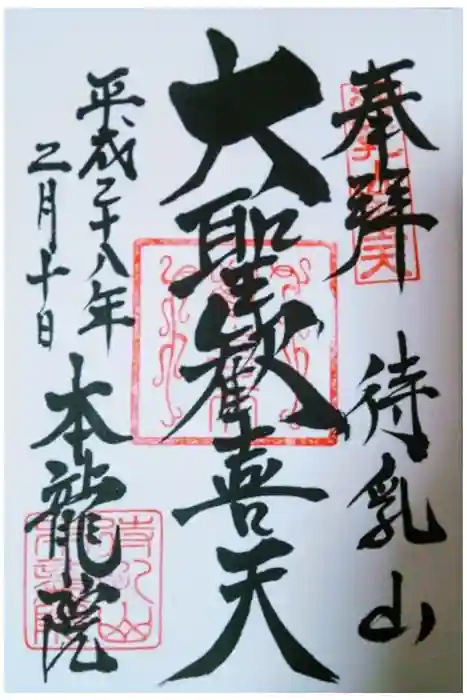 奉拝 待乳山
大聖歓喜天
平成二十八年
三月十日
本龍院